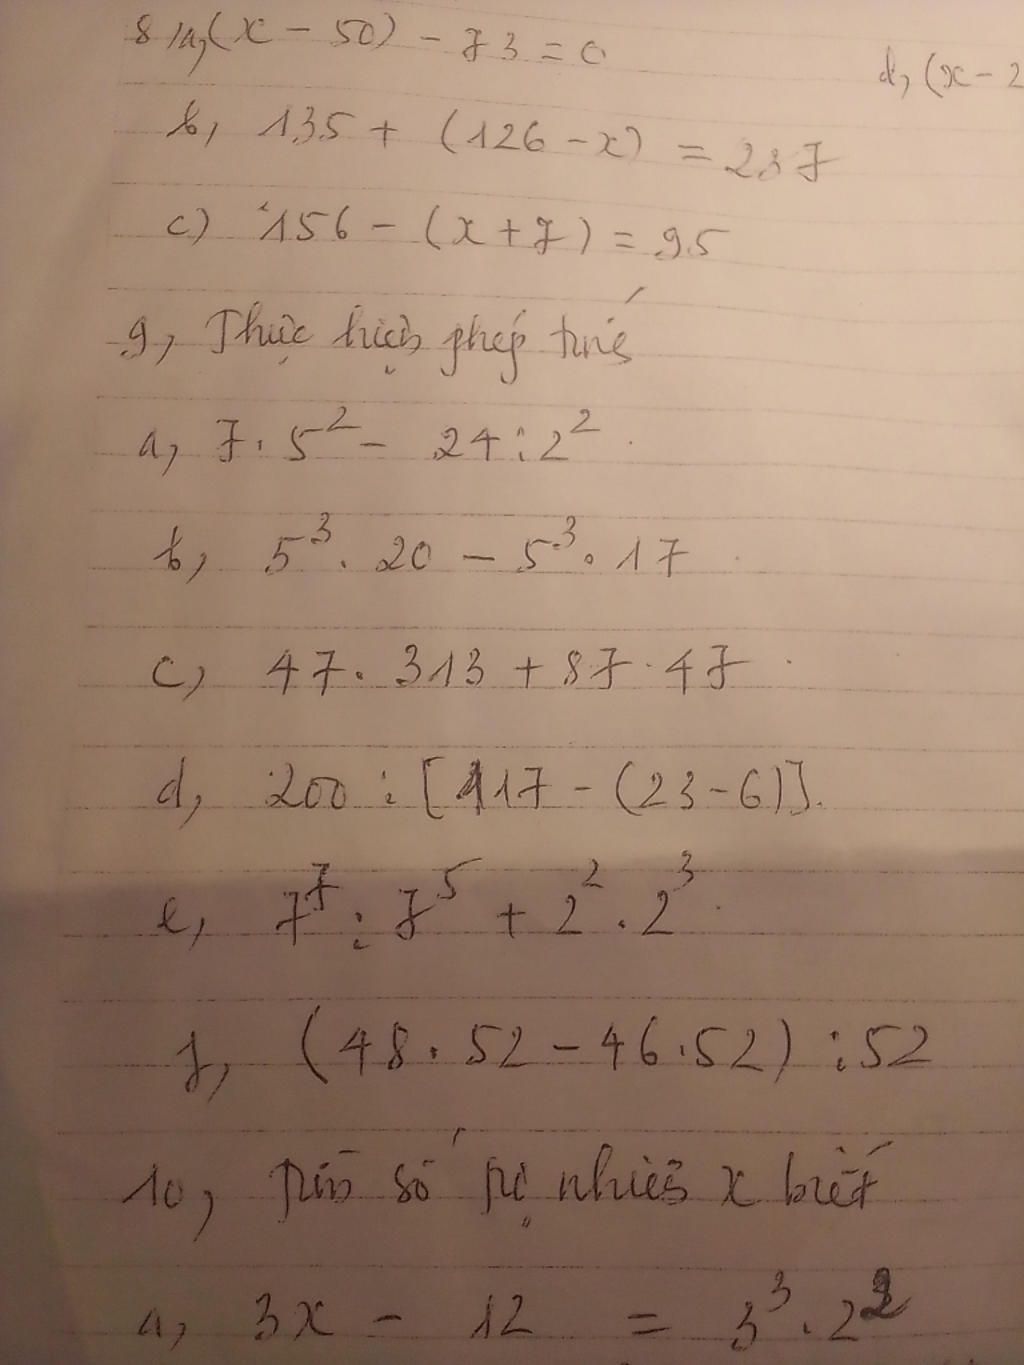 8, a, (x - 50) - 73 = 0
d, (x - 2
b, 135 + (126 - x) = 237
c) 156 - (x + 7) = 95
9, Thực hiện phép tính
a, 7 . 5² - 24 : 2²
b, 5³ . 20 - 5³ . 17
c, 47 . 313 + 87 . 47
d, 200 : [117 - (23 - 6)].
e, 7⁷ : 7⁵ + 2² . 2³
f, (48 . 52 - 46 . 52) : 52
10, Tìm số tự nhiên x biết
a, 3x - 12 = 3³ .